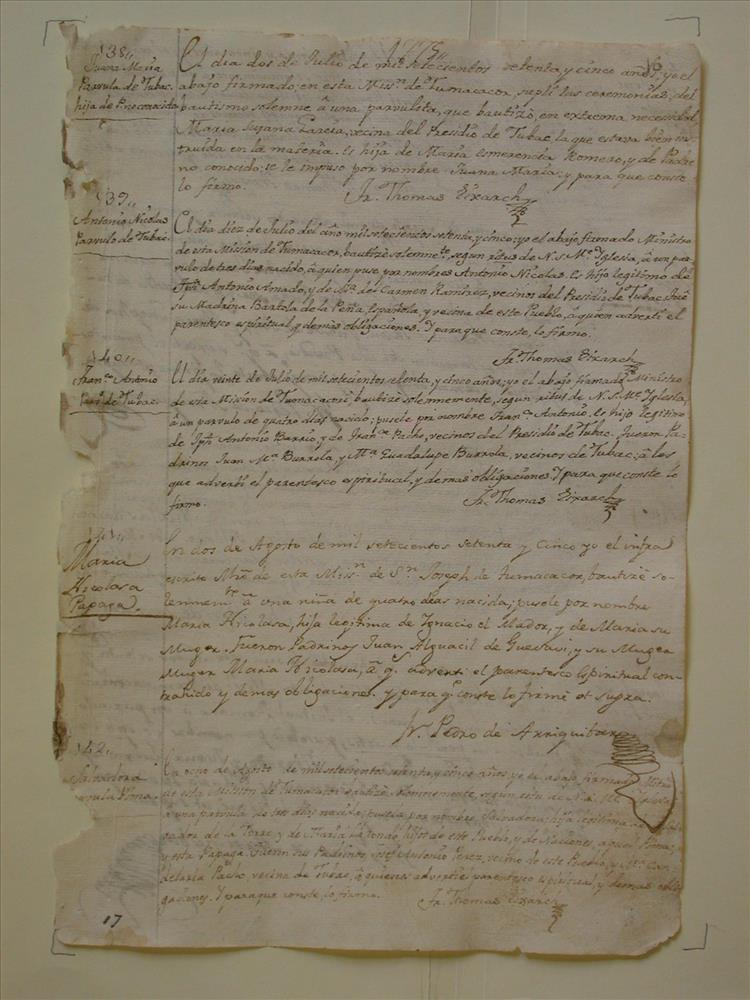 1775,,
16
138,,
Juana Maria
Parvula de Tubac.
hija de P. no conocido
El dia dos de Julio de mil setecientos setenta, y cinco años, yo el
abajo firmado, en esta Miss.n de Tumacacor, suplí las ceremonias, del
bautismo solemne â una parvulita, que bautizó, en extrema necesidad,
Maria Susana Garcia, vecina del Presidio de Tubac, la que estava bien ins
truida en la materia. Es hija de Maria Esmerencia Romero, y de Padre
no conocido: se le impuso por nombre Juana Maria: y para que conste
lo firmo.
Fr. Thomas Eixarch
139,,
Antonio Nicolas
Parvulo de Tubac.
El dia diez de Julio del año mil setecientos setenta, y cinco: yo el abajo firmado Ministro
de esta Mission de Tumacacor, bautizè solemne.te, segun ritus de N. S. M.e Yglesia, â un par
vulo de tres dias nacido, â quien puse por nombres Antonio Nicolas. Es hijo legitimo de
Antonio Amado, y de M.a del Carmen Ramirez, vecinos del Presidio de Tubac. Fuè
su Madrina Bartola de la Peña, Española, y vecina de este Pueblo, a quien advertí el
parentesco espiritual, y demas obligaciones. Y para que conste, lo firmo.
Fr. Thomas Eixarch
140,,
Fran.co Antonio
Parv. de Tubac.
El dia veinte de Julio de mil setecientos setenta, y cinco años, yo el abajo, firmado Ministro
de esta Mission de Tumacacori bautizè solemnemente, segun ritus de N. S. M.e Yglesia,
â un parvulo de quatro dias nacido: pusele por nombre Fran.co Antonio. Es hijo legitimo
de Antonio Barrio, y de Fran.ca Pacho, vecinos del Presidio de Tubac. Fueron Pa
drinos Juan M.a Burrola, y M.a Guadalupe Burrola, vecinos de Tubac: â los
que advertí el parentesco espiritual, y demas obligaciones. Y para que conste lo
firmo.
Fr. Thomas Eixarch
141,,
Maria
Nicolasa
Papaga.
En dos de Agosto de mil setecientos setenta y cinco yo el infra
escrito Min.o de esta Miss.n de S.n Joseph de Tumacacor, bautizè so-
lemnem.te â una niña de quatro dias nacida; pusele por nombre
Maria Nicolasa, hija legitima de Ignacio el Mador, y de Maria su
Muger. Fueron Padrinos Juan Alguacil de Guevavi, y su Muger
Muger Maria Nicolasa, â q. advertí el parentesco Espiritual con-
trahido y demas obligaciones. y para q. conste lo firmè ut supra.
Fr. Pedro de Arriquibar
142,,
Salvadora
Parvula Pima.
En ocho de Agosto de mil setecientos setenta, y cinco años yo el abajo firmado
de esta Mission de Tumacacor bautizè solemnemente, segun
â una parvula de tres dias nacida: pusela por nombre Salvadora: hija legitima de
de la Torre, y de Maria hijos de este Pueblo, y de Naciones, aquel Pima;
y esta Papaga. Fueron sus Padrinos Josef Antonio Perez, vecino de este Pueblo, y M.a Can
delaria Pacho, vecina de Tubac, â quienes advertí el parentesco espiritual, y demas obli
gaciones. Y para que conste, lo firmo.
Fr. Thomas Eixarch
17